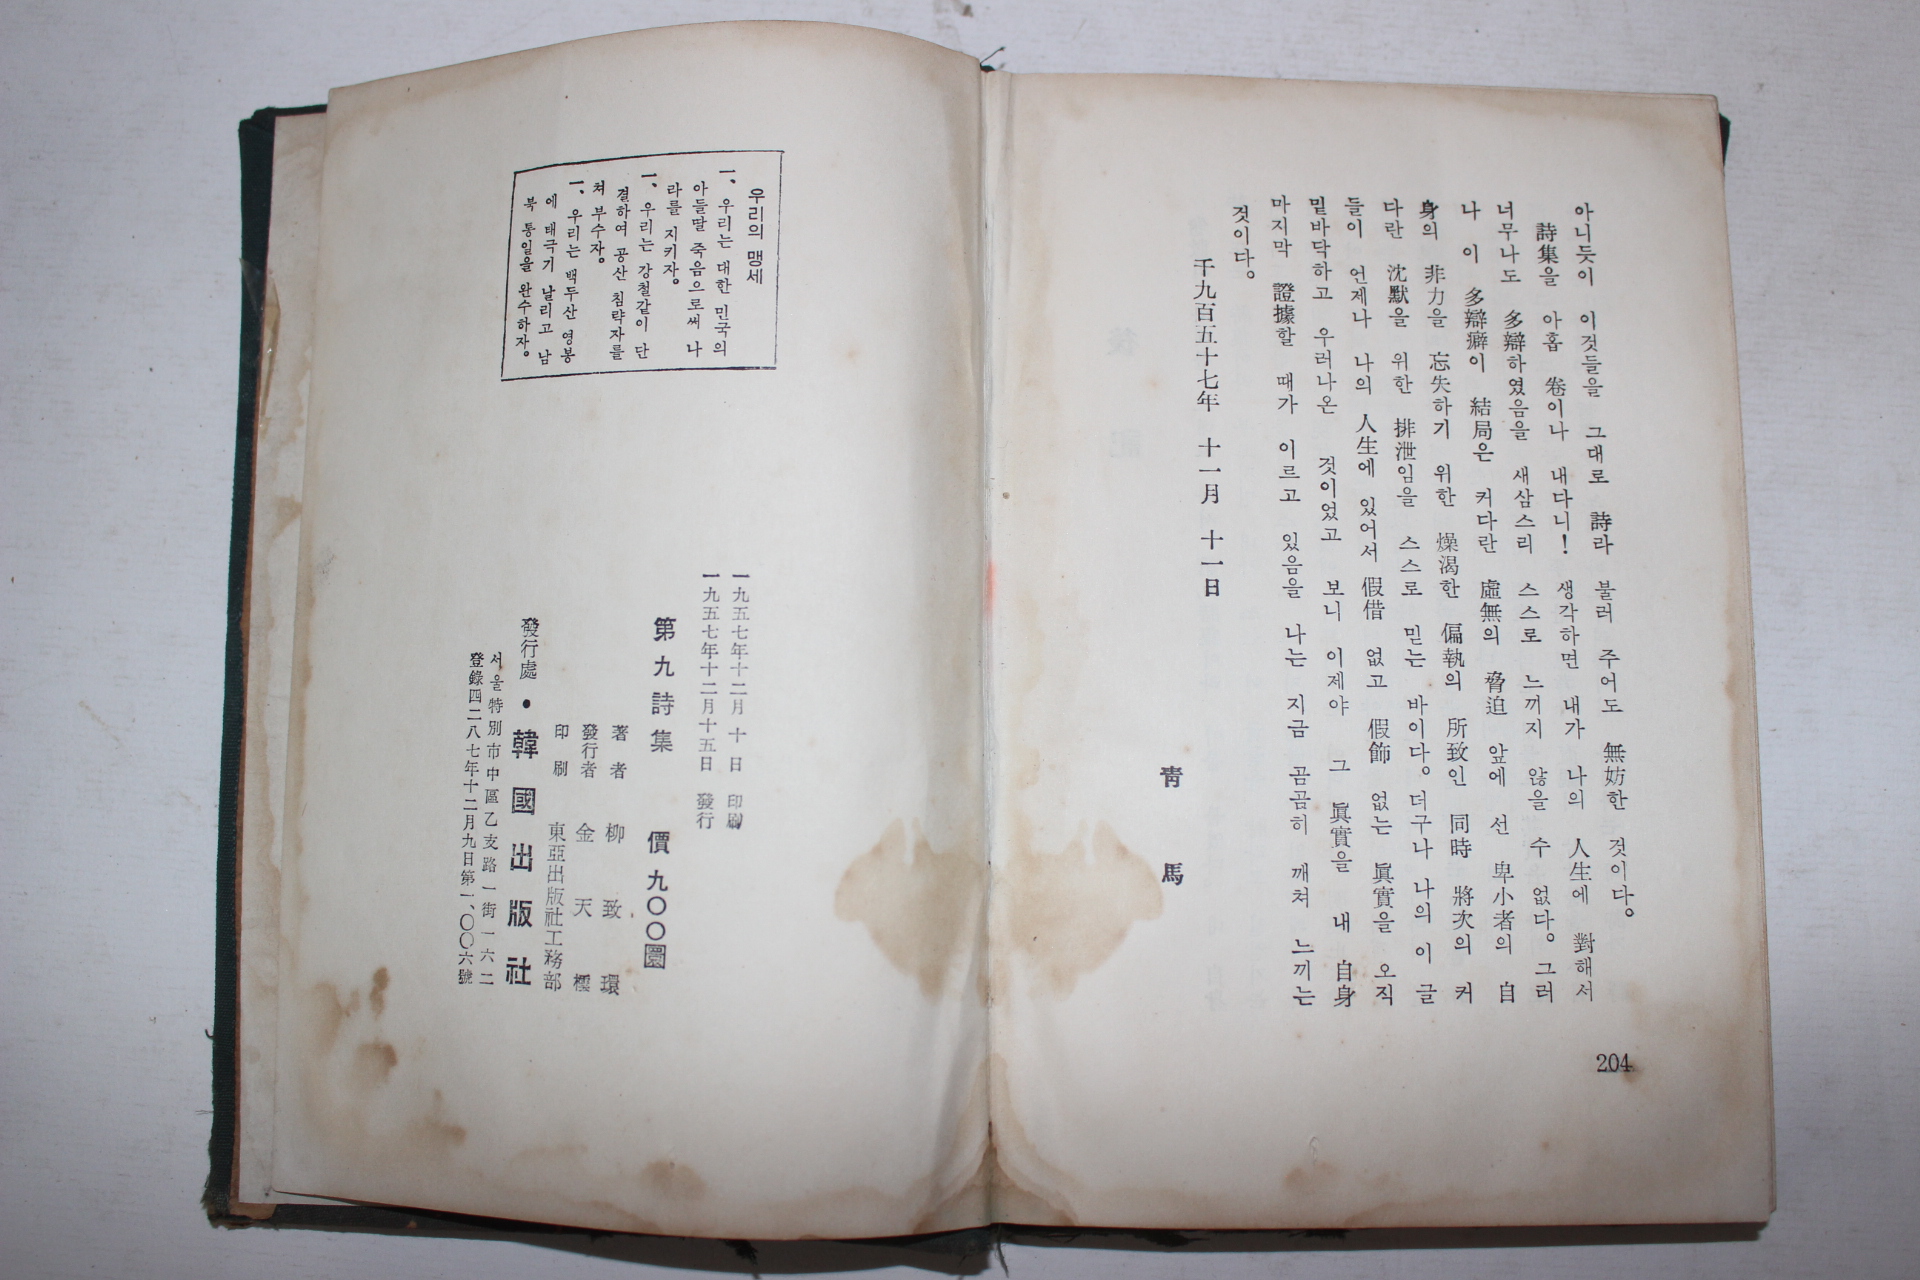 아니듯이 이것들을 그대로 詩라 불러 주어도 無妨한 것이다。
詩集을 아홉 卷이나 내다니! 생각하면 내가 나의 人生에 對해서
너무나도 多辯하였음을 새삼스리 스스로 느끼지 않을 수 없다。그러
나 이 多辯癖이 結局은 커다란 虛無의 脅迫 앞에 선 卑小者의 自
身의 非力을 忘失하기 위한 燥渴한 偏執의 所致인 同時 將次의 커
다란 沈默을 위한 排泄임을 스스로 믿는 바이다。더구나 나의 이 글
들이 언제나 나의 人生에 있어서 假借 없고 假飾 없는 眞實을 오직
밑바닥하고 우러나온 것이었고 보니 이제야 그 眞實을 내 自身
마지막 證據할 때가 이르고 있음을 나는 지금 곰곰히 깨쳐 느끼는
것이다。
千九百五十七年 十一月 十一日
靑馬
204
우리의 맹세
一、우리는 대한 민국의
아들딸 죽음으로써 나
라를 지키자。
一、우리는 강철같이 단
결하여 공산 침략자를
쳐 부수자。
一、우리는 백두산 영봉
에 태극기 날리고 남
북 통일을 완수하자。
一九五七年十二月 十日 印刷
一九五七年十二月十五日 發行
第九詩集 價九〇〇圜
著者 柳致環
發行者 金天
印刷 東亞出版社工務部
發行處・韓國出版社
서울特別市中區乙支路一街一六二
登錄四二八七年十二月九日第一、〇〇六號